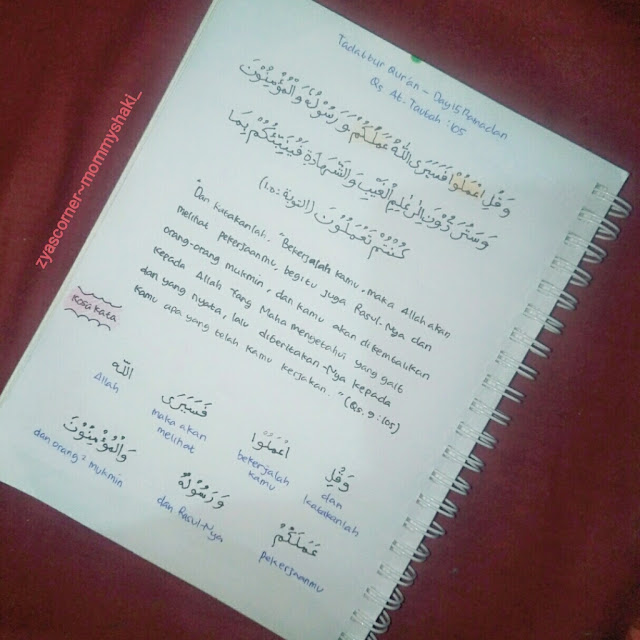 Tadabbur Qur'an - Day 15 Ramadan
Qs At-Taubah : 105
وَقُلِ اعْمَلُوْا فَسَيَرَى اللّٰهُ عَمَلَكُمْ وَرَسُوْلُهٗ وَالْمُؤْمِنُوْنَ
وَسَتُرَدُّوْنَ اِلٰى عٰلِمِ الْغَيْبِ وَالشَّهَادَةِ فَيُنَبِّئُكُمْ بِمَا
كُنْتُمْ تَعْمَلُوْنَ (التوبة : ١٠٥)
"Dan katakanlah, "Bekerjalah kamu, maka Allah akan
melihat pekerjaanmu, begitu juga Rasul-Nya dan
orang-orang mukmin, dan kamu akan dikembalikan
kepada Allah Yang Maha mengetahui yang gaib
dan yang nyata, lalu diberitakan-Nya kepada
kamu apa yang telah kamu kerjakan." (Qs. 9 : 105)
Kosa Kata
وَقُلِ
dan
katakanlah
اعْمَلُوْا
bekerjalah
kamu
فَسَيَرَى
maka akan
melihat
اللّٰه
Allah
عَمَلَكُمْ
pekerjaanmu
وَرَسُوْلُهٗ
dan Rasul-Nya
وَالْمُؤْمِنُوْنَ
dan orang² mukmin
zyascorner~mommyshaki_